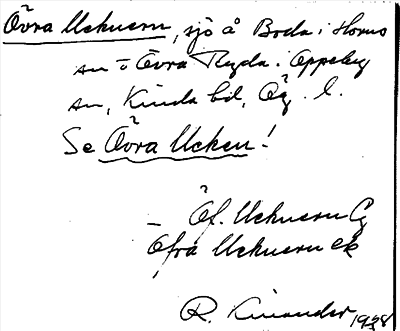 Övra Uckuern, sjö å Boda i Horns
sn o Övra Ryda i Oppeby
sn, Kinda hd, Ög. l.
Se Övra Ucken!
– Öf. Uckuern G
Öfra Uckuern ek
R. Kinander 1928